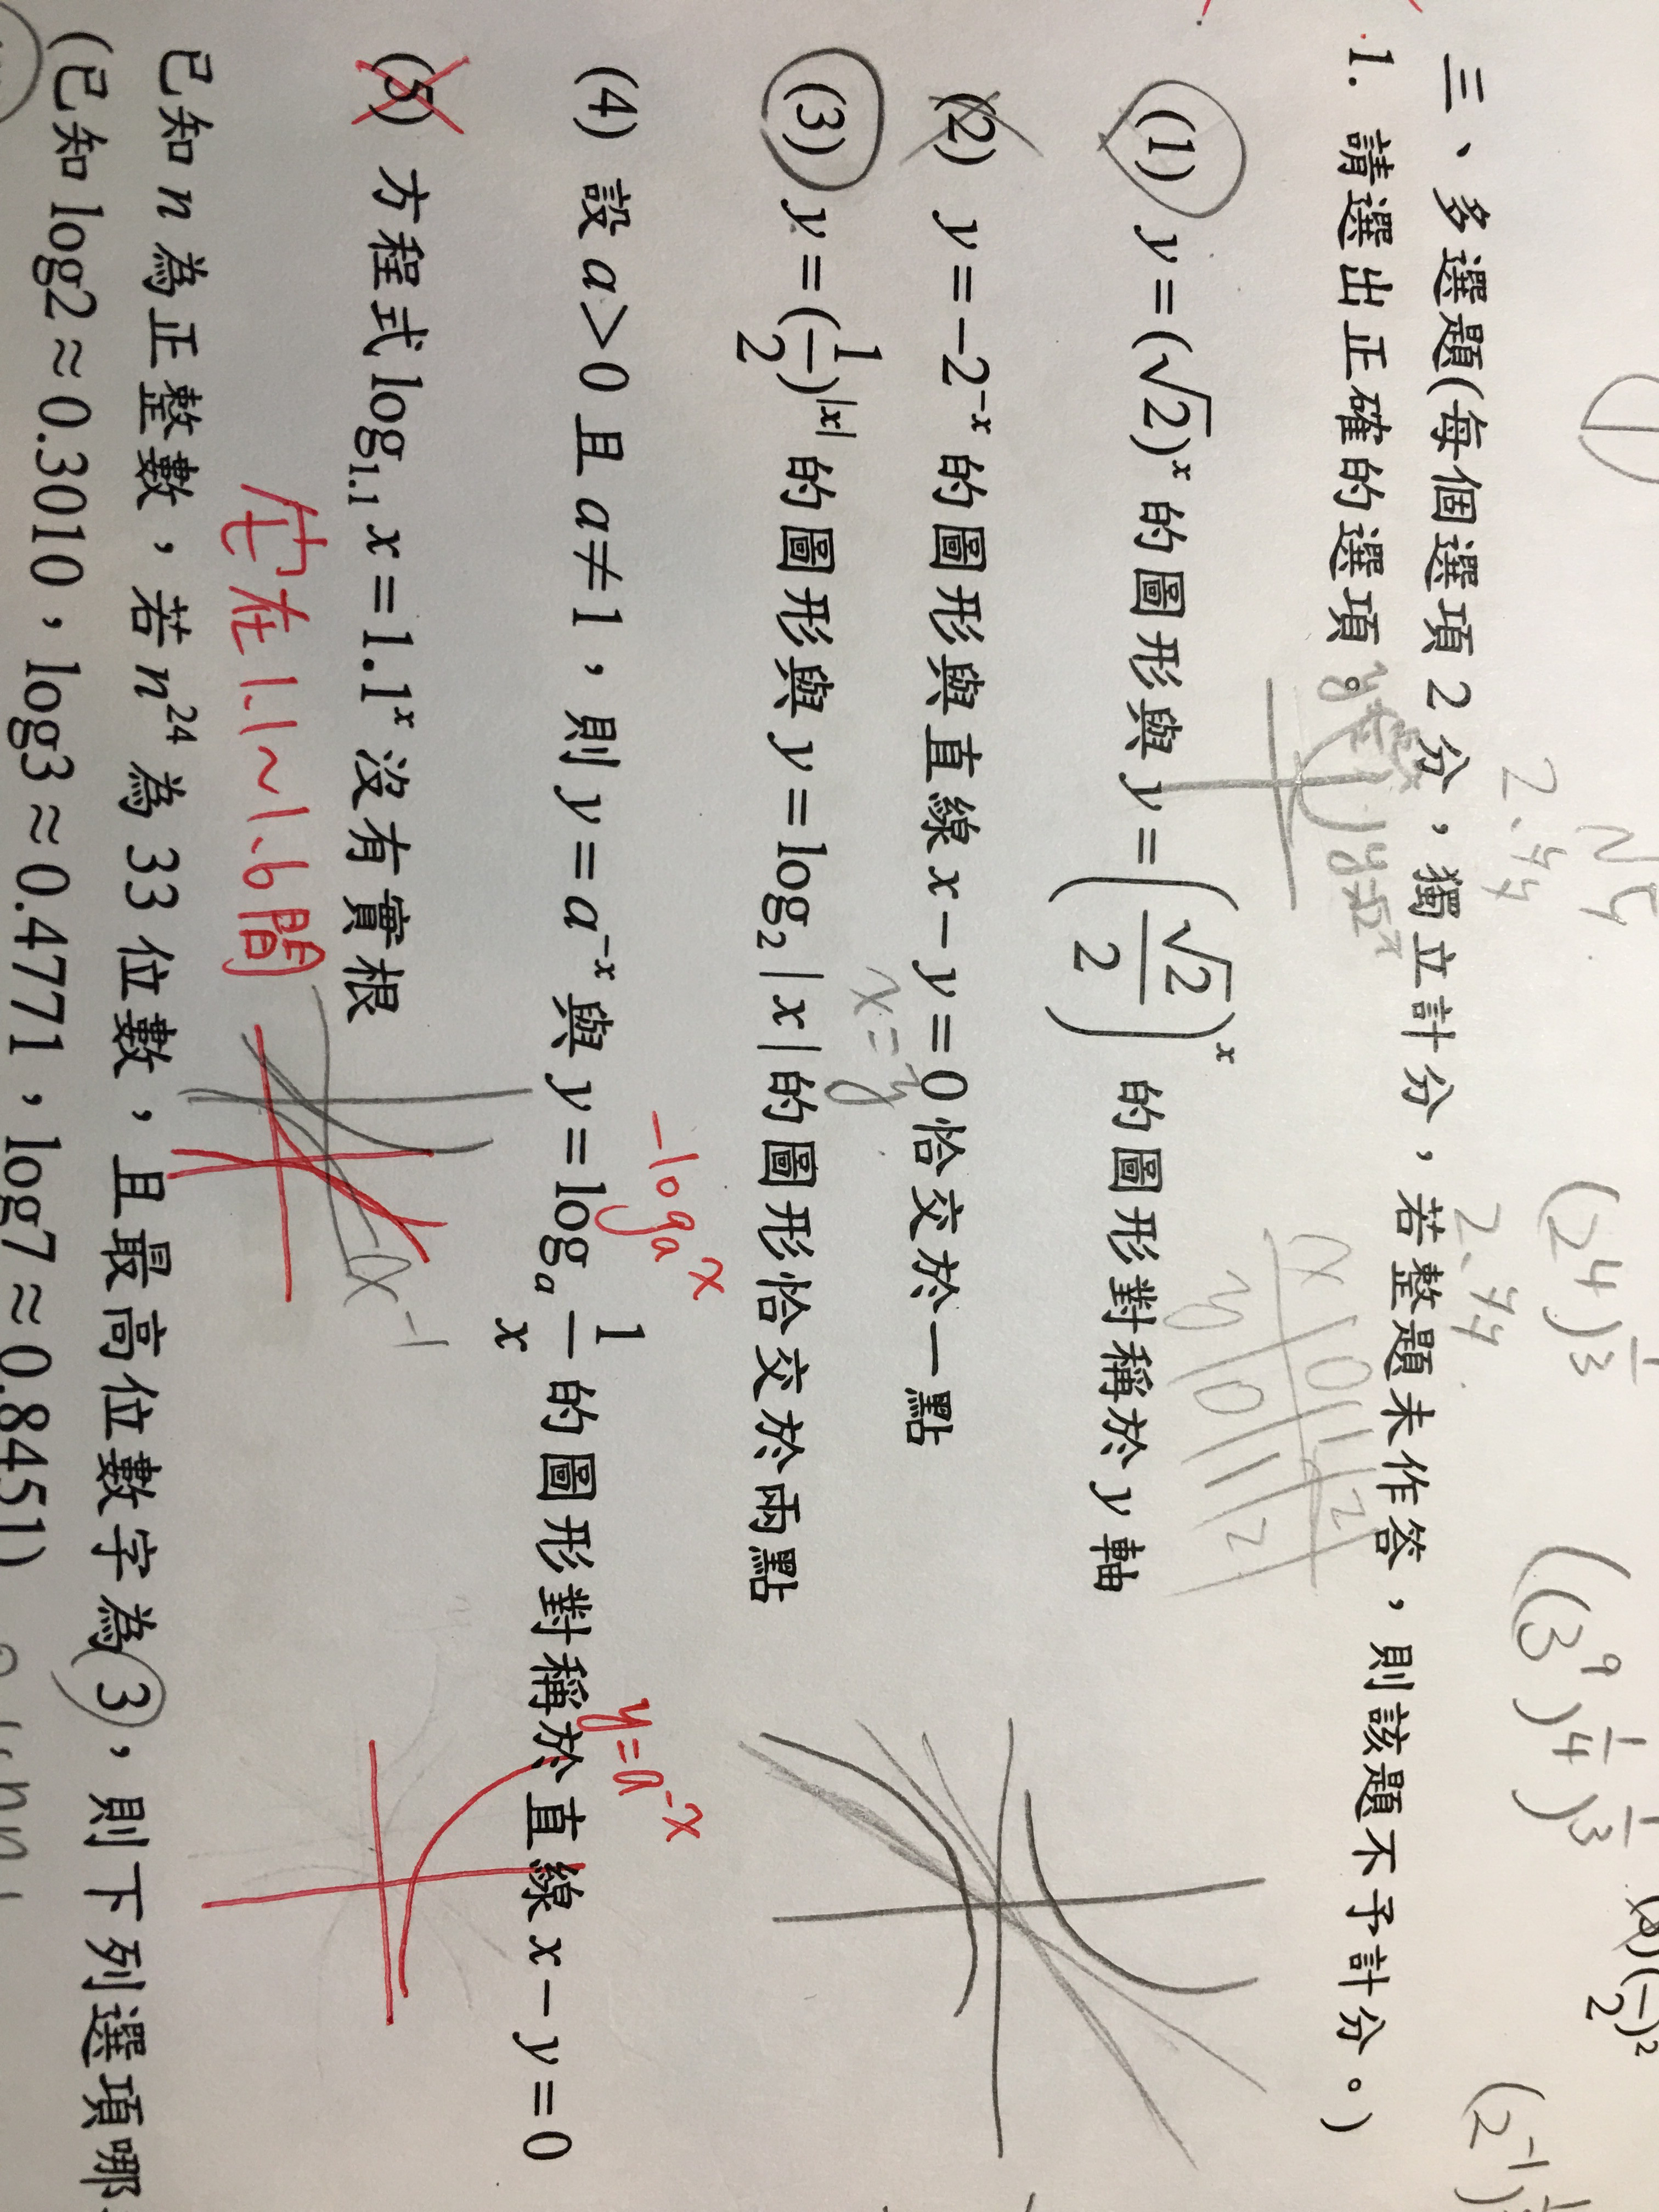 √5
2.44
2.44
(2⁴)^(1/3)
((3⁹)^(1/4))^(1/3)
三、多選題(每個選項 2 分，獨立計分，若整題未作答，則該題不予計分。)
1. 請選出正確的選項。
x 0 1 2
y 0 1 2
(1) y=(√2)^x 的圖形與 y=(√2/2)^x 的圖形對稱於 y 軸
(2) y=-2^(-x) 的圖形與直線 x-y=0 恰交於一點
x=y
(3) y=(1/2)^|x| 的圖形與 y=log₂|x| 的圖形恰交於兩點
-logₐx
y=a^(-x)
(4) 設 a>0 且 a≠1，則 y=a^(-x) 與 y=logₐ 1/x 的圖形對稱於直線 x-y=0
(5) 方程式 log₁.₁ x=1.1^x 沒有實根
在 1.1~1.6 間
已知 n 為正整數，若 n²⁴ 為 33 位數，且最高位數字為 3，則下列選項哪
(已知 log2≈0.3010，log3≈0.4771，log7≈0.8451)